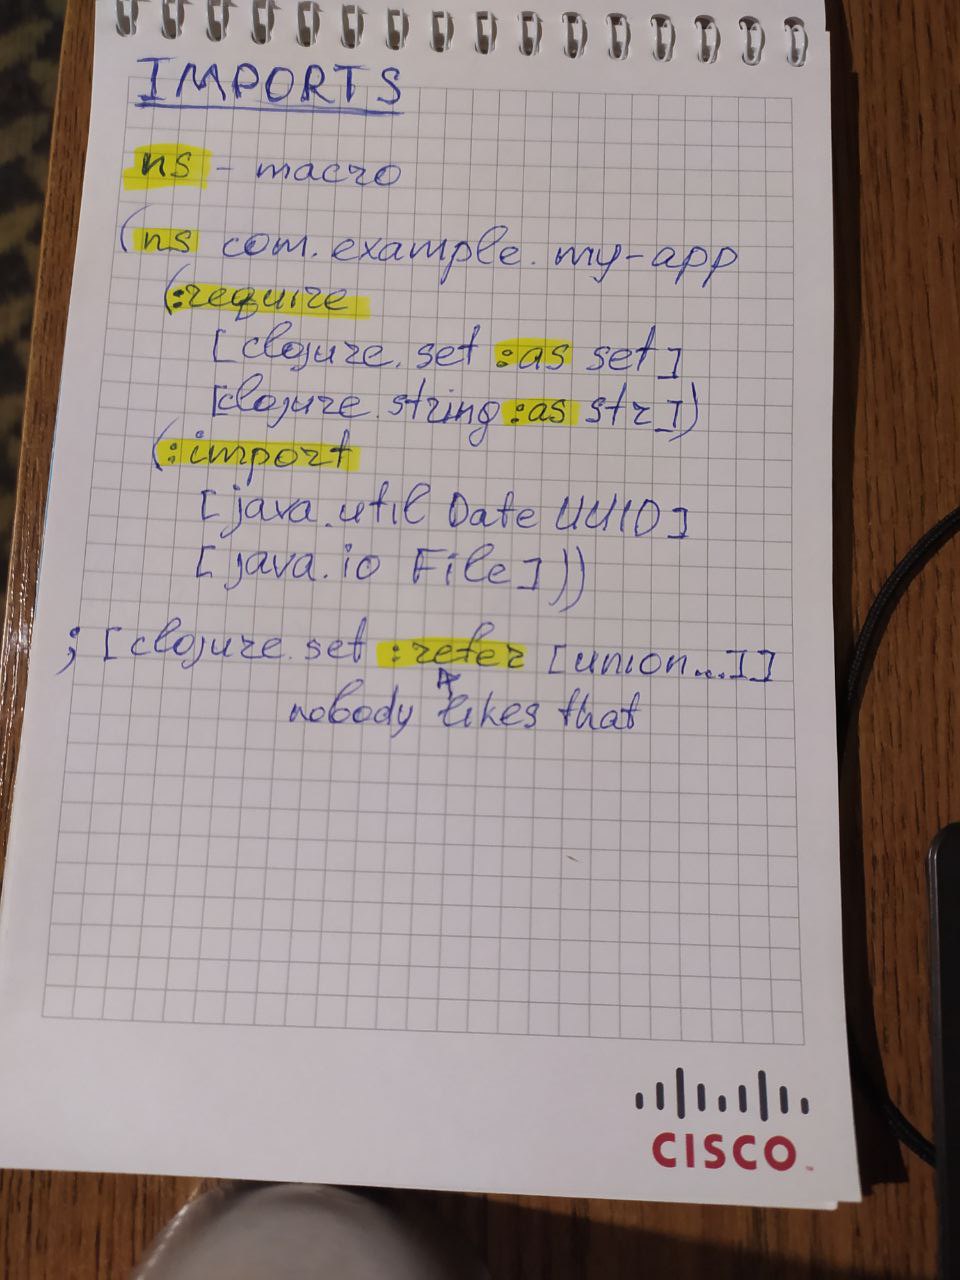 IMPORTS
ns - macro
(ns com.example.my-app
(:require
[clojure.set :as set]
[clojure.string :as str])
(:import
[java.util Date UUID]
[java.io File]))
; [clojure.set :refer [union...]]
nobody likes that
CISCO